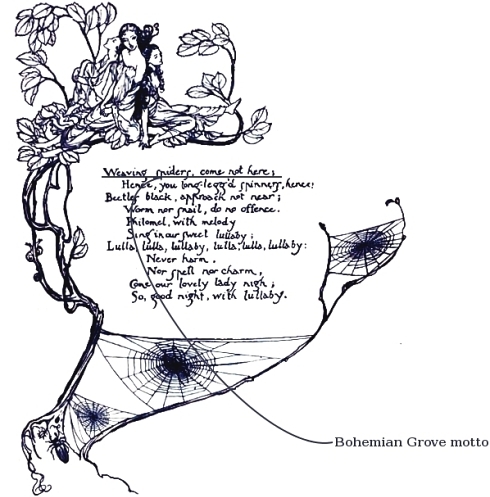 Weaving spiders, come not here;
Hence, you long-legg'd spinners, hence:
Beetles black, approach not near;
Worm nor snail, do no offence.
Philomel, with melody
Sing in our sweet lullaby;
Lulla, lulla, lullaby, lulla, lulla, lullaby:
Never harm.
Nor spell nor charm,
Come our lovely lady nigh;
So, good night, with lullaby.
Bohemian Grove motto